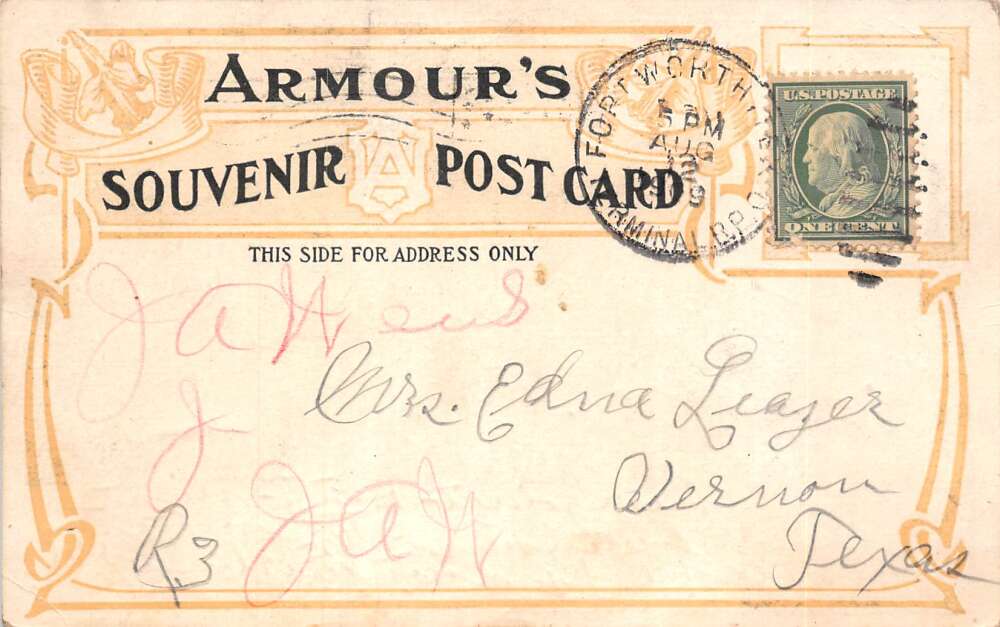 ARMOUR'S
SOUVENIR A POST CARD
THIS SIDE FOR ADDRESS ONLY
FORT WORTH
5 PM
AUG
TERMINAL R.P.O.
U.S. POSTAGE
ONE CENT
Mrs. Edna Leazer
Vernon
Texas
R3
J
JAH